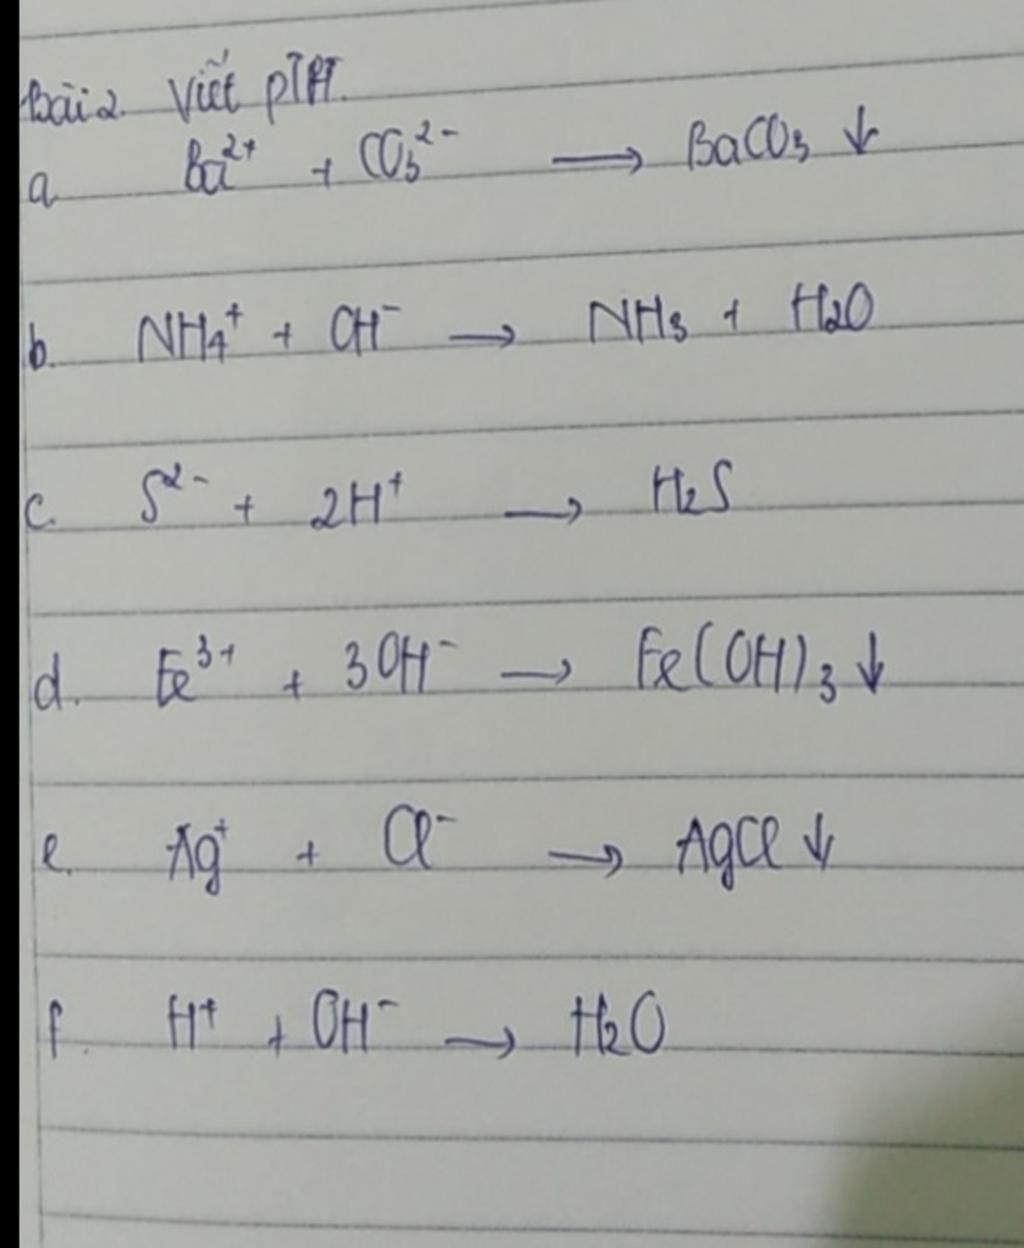 Bài 2. Viết PTPT.
a. Ba²⁺ + CO₃²⁻ → BaCO₃ ↓
b. NH₄⁺ + OH⁻ → NH₃ + H₂O
c. S²⁻ + 2H⁺ → H₂S
d. Fe³⁺ + 3OH⁻ → Fe(OH)₃ ↓
e. Ag⁺ + Cl⁻ → AgCl ↓
f. H⁺ + OH⁻ → H₂O